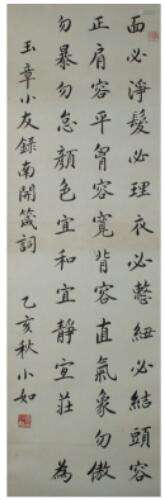 面必淨髮必理衣必整紐必結頭容
正肩容平胷容寬背容直氣象勿傲
勿暴勿怠顏色宜和宜靜宜莊 為
玉章小友錄南開箴詞 乙亥秋小如